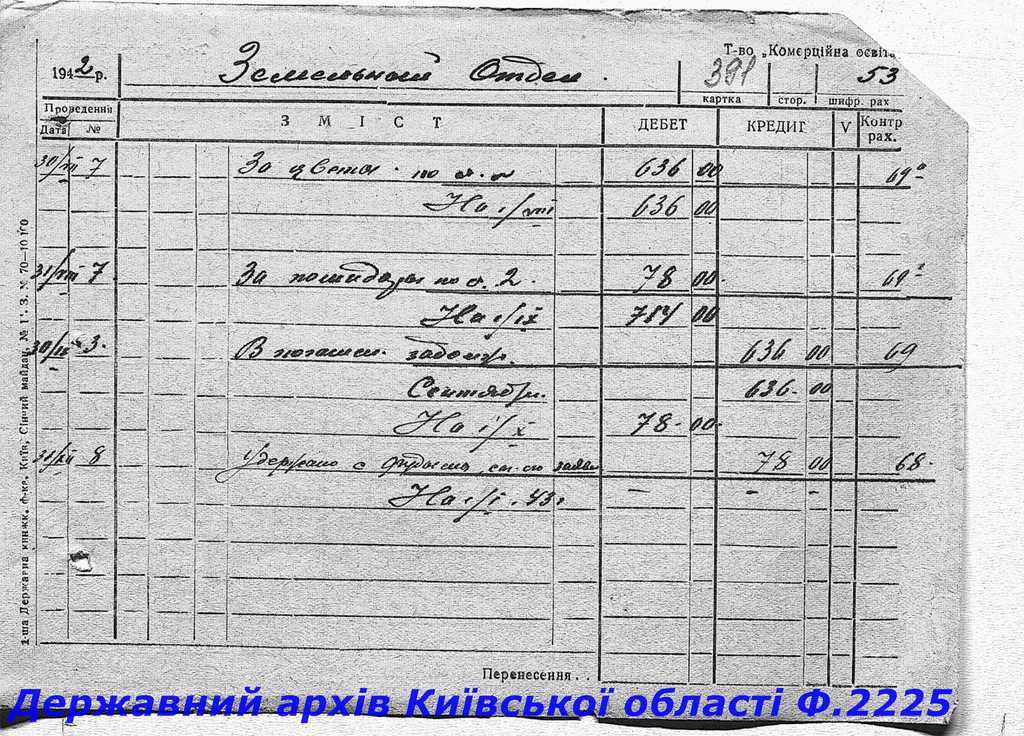 Т-во „Комерційна освіта
1942 р. Земельный Отдел. 391 53
картка стор. шифр. рах
Проведення
Дата № ЗМІСТ ДЕБЕТ КРЕДИТ V Контр рах.
30/VII 7 За цветы по 636 00 69
На 1/VIII 636 00
31/VIII 7 За помидоры по с. 2. 78 00 69
На 1/IX 714 00
30/IX 3. В погашен. задолж. 636 00 69
Сентябрь. 636. 00
На 1/X 78. 00.
31/XII 8 Удержано с 78 00 68.
На 1/I. 43г — — —
Перенесення. .
1-ша Державна книжк. ф-ка. Київ, Сінний майдан, № 70—10 100
Державний архів Київської області Ф.2225